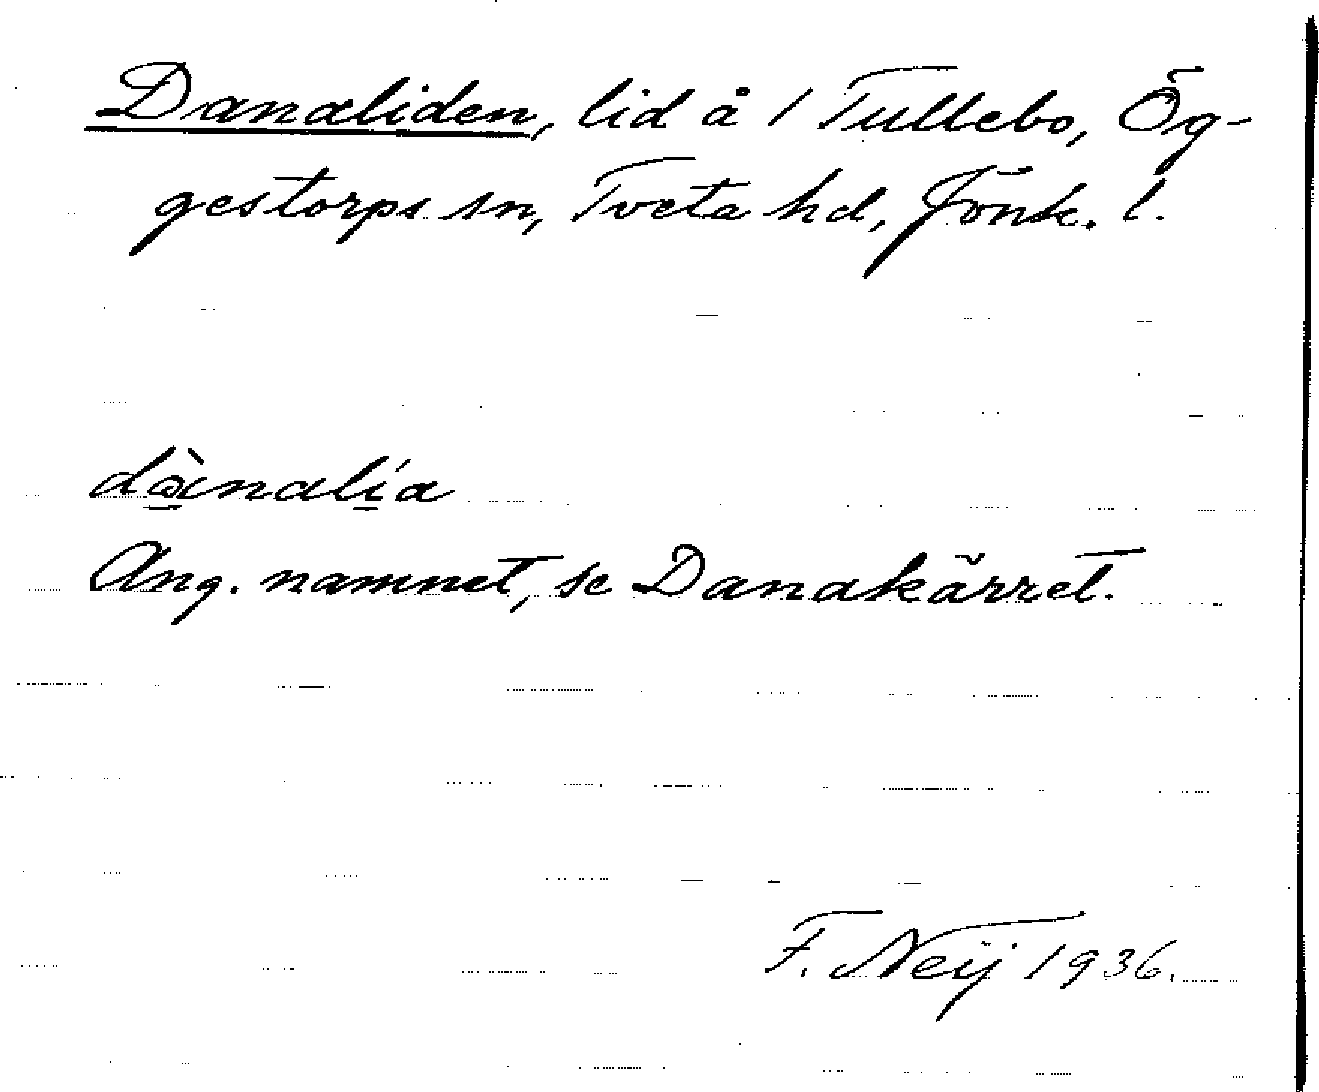 Danaliden, lid å 1 Tullebo, Ög-
gestorps sn, Tveta hd, Jönk. l.
dànalía
Ang. namnet, se Danakärret.
F. Neij 1936.